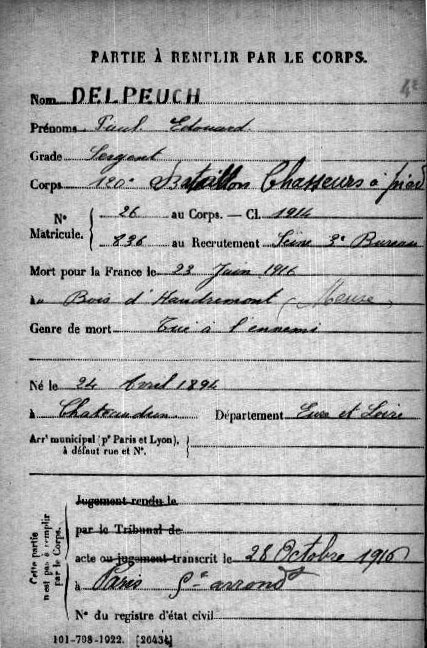 PARTIE À REMPLIR PAR LE CORPS.
4e
Nom DELPEUCH
Prénoms Paul Edouard
Grade Sergent
Corps 120e Bataillon Chasseurs à pied
N° Matricule. 26 au Corps. — Cl. 1914
836 au Recrutement Seine 3e Bureau
Mort pour la France le 23 Juin 1916
à au Bois d'Haudremont (Meuse)
Genre de mort Tué à l'ennemi
Né le 24 Avril 1894
à Chateaudun Département Eure et Loire
Arrt municipal (pr Paris et Lyon),
à défaut rue et N°.
Cette partie n'est pas à remplir par le Corps.
Jugement rendu le
par le Tribunal de
acte ou jugement transcrit le 28 Octobre 1916
à Paris arrondt
N° du registre d'état civil
101-798-1922. [26434]